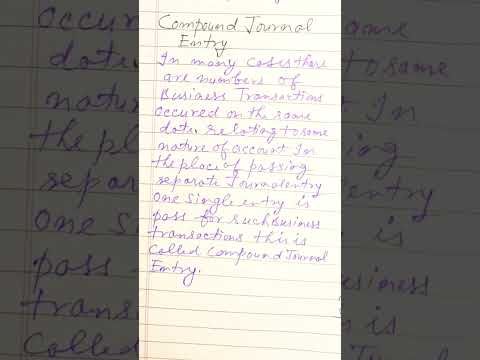 Compound Journal
Entry
In many cases there
are numbers of
Business Transactions
occured on the same
date, relating to same
nature of account In
the place of passing
separate Journal entry
one single entry is
pass for such Business
transactions this is
called Compound Journal
Entry.